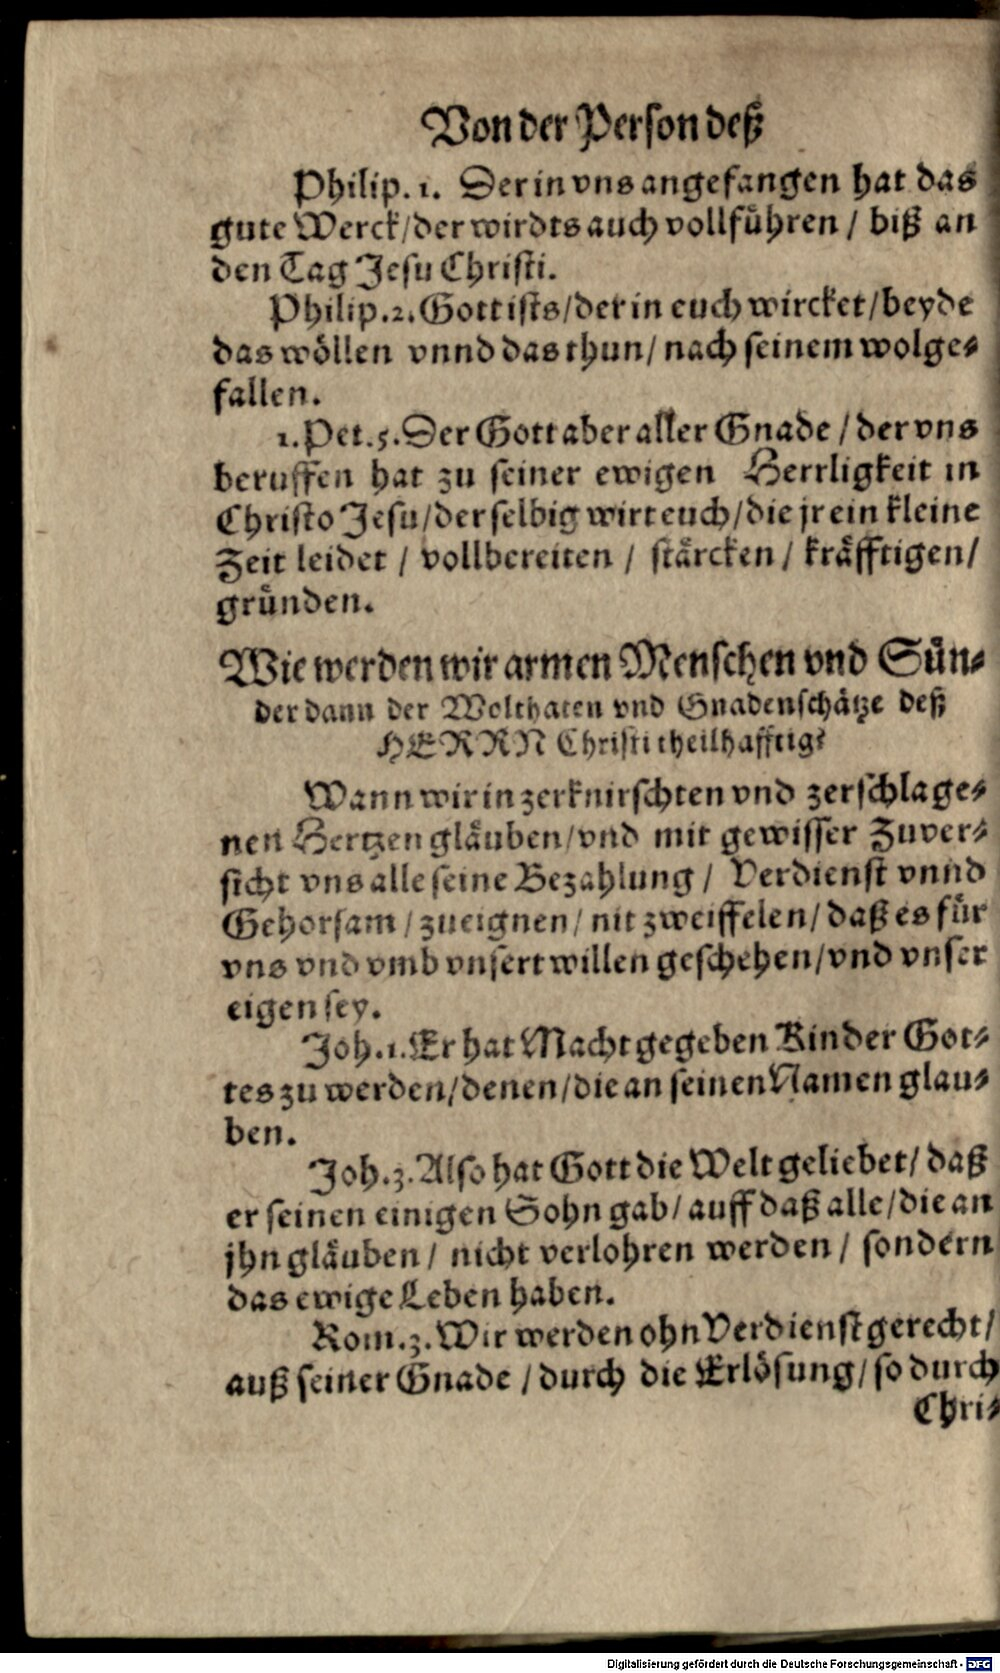 Von der Person deß
Philip. 1. Der in vns angefangen hat das
gute Werck/der wirdts auch vollführen / biß an
den Tag Jesu Christi.
Philip. 2. Gott ists/der in euch wircket/beyde
das wöllen vnnd das thun/ nach seinem wolge-
fallen.
1. Pet. 5. Der Gott aber aller Gnade / der vns
beruffen hat zu seiner ewigen Herrligkeit in
Christo Jesu/der selbig wirt euch/die jr ein kleine
Zeit leidet / vollbereiten / stärcken / kräfftigen/
gründen.
Wie werden wir armen Menschen vnd Sün-
der dann der Wolthaten vnd Gnadenschätze deß
HERRN Christi theilhafftig?
Wann wir in zerknirschten vnd zerschlage-
nen Hertzen gläuben/vnd mit gewisser Zuver-
sicht vns alle seine Bezahlung / Verdienst vnnd
Gehorsam / zueignen/ nit zweiffelen/ daß es für
vns vnd vmb vnsert willen geschehen/vnd vnser
eigen sey.
Joh. 1. Er hat Macht gegeben Kinder Got-
tes zu werden/denen/die an seinen Namen glau-
ben.
Joh. 3. Also hat Gott die Welt geliebet/ daß
er seinen einigen Sohn gab/ auff daß alle/die an
jhn gläuben / nicht verlohren werden / sondern
das ewige Leben haben.
Rom. 3. Wir werden ohn Verdienst gerecht/
auß seiner Gnade / durch die Erlösung/ so durch
Chri-
Digitalisierung gefördert durch die Deutsche Forschungsgemeinschaft - DFG